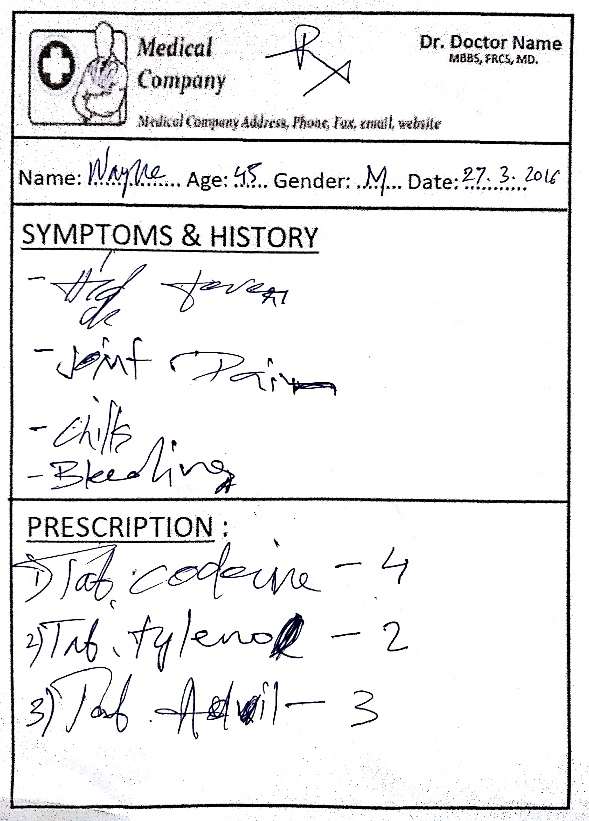 Medical
Company
Rx
Dr. Doctor Name
MBBS, FRCS, MD.
Medical Company Address, Phone, Fax, email, website
Name: Wayne Age: 45 Gender: M Date: 27. 3. 2016
SYMPTOMS & HISTORY
- High fever
- Joint Pain
- Chills
- Bleeding
PRESCRIPTION :
1) Tab. codeine - 4
2) Tab. tylenol - 2
3) Tab. Advil - 3